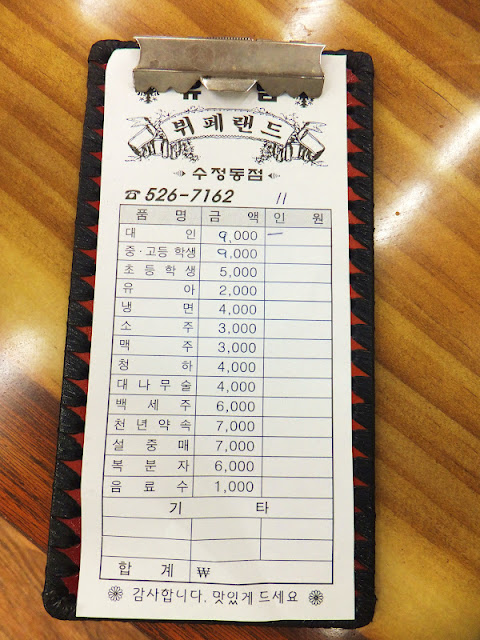 뷔페랜드
수정동점
☎ 526-7162 11
품 명 금 액 인 원
대 인 9,000 一
중·고등 학생 9,000
초 등 학 생 5,000
유 아 2,000
냉 면 4,000
소 주 3,000
맥 주 3,000
청 하 4,000
대 나 무 술 4,000
백 세 주 6,000
천 년 약 속 7,000
설 중 매 7,000
복 분 자 6,000
음 료 수 1,000
기 타
합 계 ₩
감사합니다. 맛있게 드세요